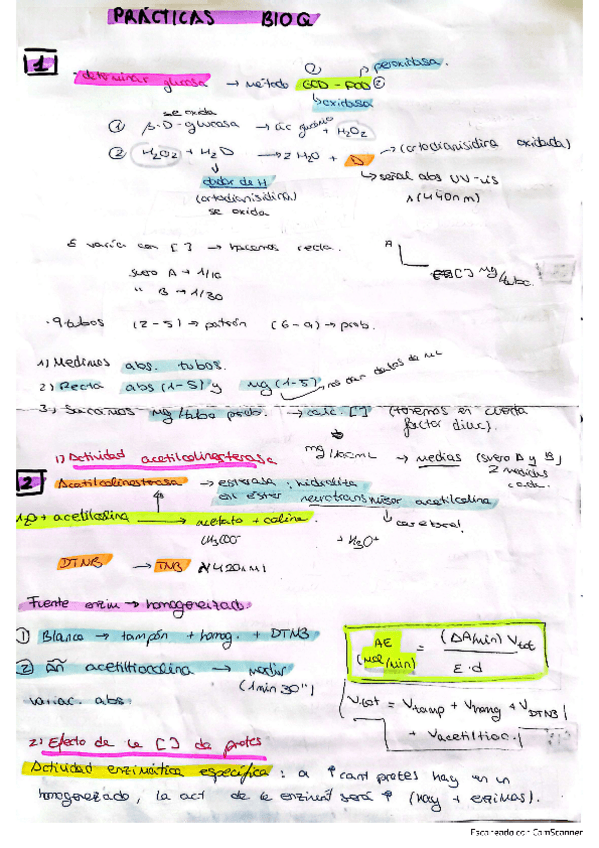 PRÁCTICAS BIOQ
1
② peroxidasa.
· determinar glucosa → método GOD - POD ②
oxidasa
se oxida
① β-D-glucosa → ác glucónico + H2O2
② H2O2 + H2D → 2 H2O + D → (ortodianisidina oxidada)
dador de H
↳ señal abs UV-vis
(ortodianisidina) λ (440nm)
se oxida
varía con [ ] → hacemos recta. A
[ ] mg/tubo.
suero A → 1/10
" B → 1/30
· 9 tubos (2-5) → patrón (6-9) → prob.
1) Medimos abs. tubos.
nos dan datos de mL
2) Recta abs (1-5) y mg (1-5)
3) Sacamos mg/tubo prob. → calc. [ ] (tenemos en cuenta
factor diluc).
mg/100mL → medias (suero A y B)
2 medidas
cada.
1) Actividad acetilcolinesterasa
2 Acetilcolinesterasa → esterasa: hidroliza
el éster neurotransmisor acetilcolina
H2O + acetilcolina → acetato + colina.
↓ cerebral
CH3COO- + H3O+
DTNB → TNB λ(420nm)
Fuente enzim → homogeneizado
① Blanco → tampón + homog. + DTNB
② añ acetiltiocolina → medir
(1 min 30")
variac. abs.
AE (mol/min) = (ΔA/min) Vtot / ε·d
Vtot = Vtamp + Vhomg + VDTNB
+ Vacetiltioc.
2) Efecto de la [ ] de protes
Actividad enzimática específica: a ↑ cant protes hay en un
homogeneizado, la act de la enzima será ↑ (hay + enzimas).
Escaneado con CamScanner